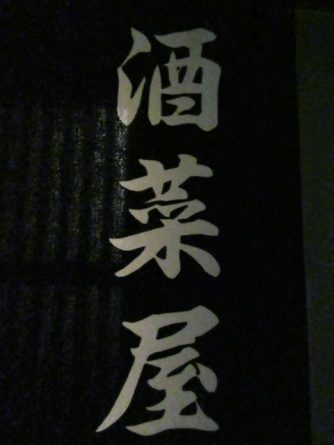 酒菜屋